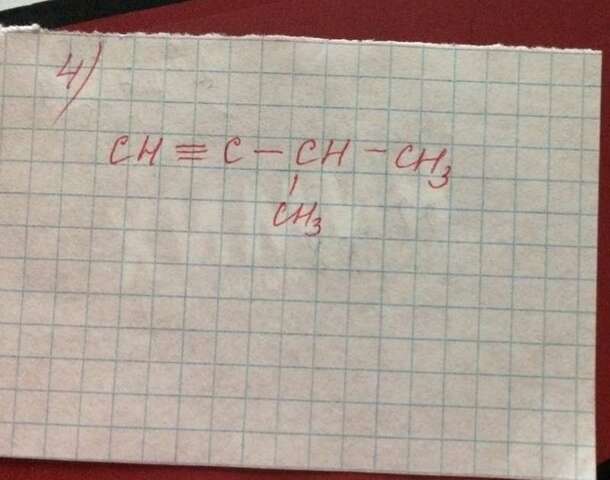 4)
CH ≡ C – CH – CH₃
CH₃